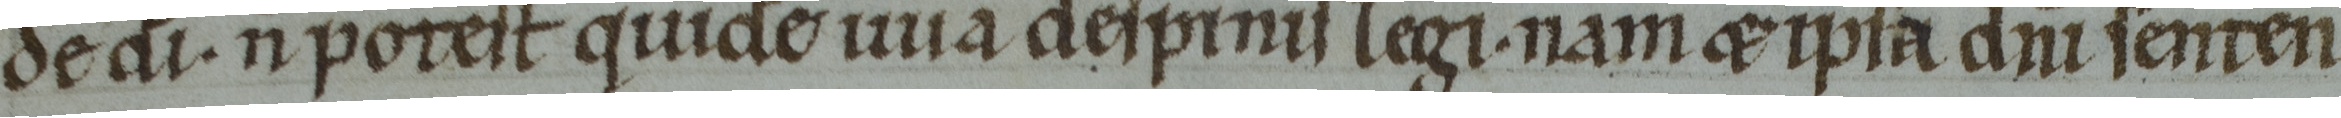 dedi. n potest quide uua despinis legi. nam & ipsa dni senten